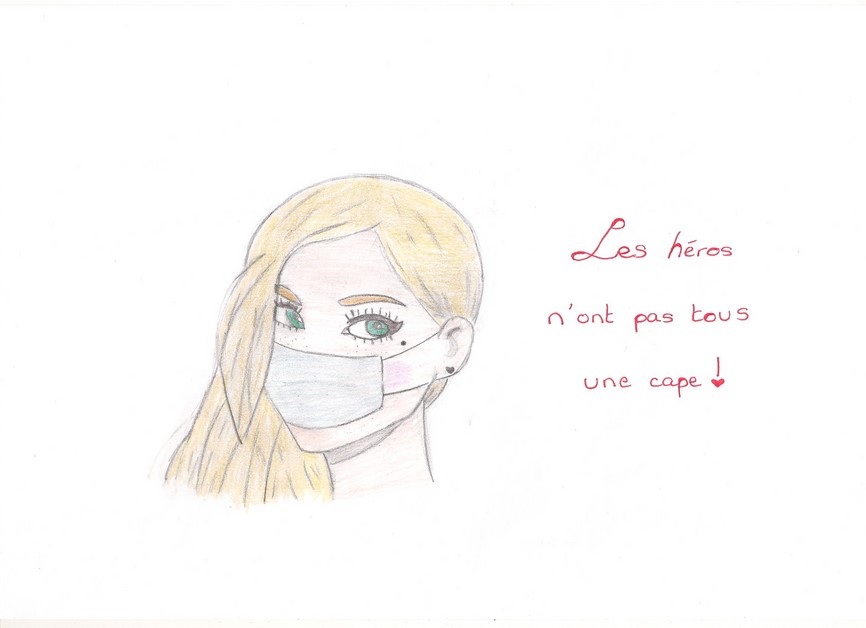 Les héros
n'ont pas tous
une cape !